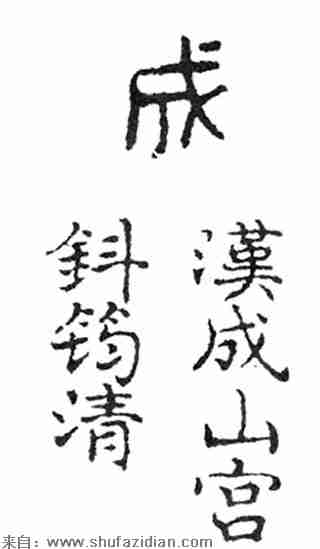 成
漢成山宮
鈄筠清
来自：www.shufazidian.com